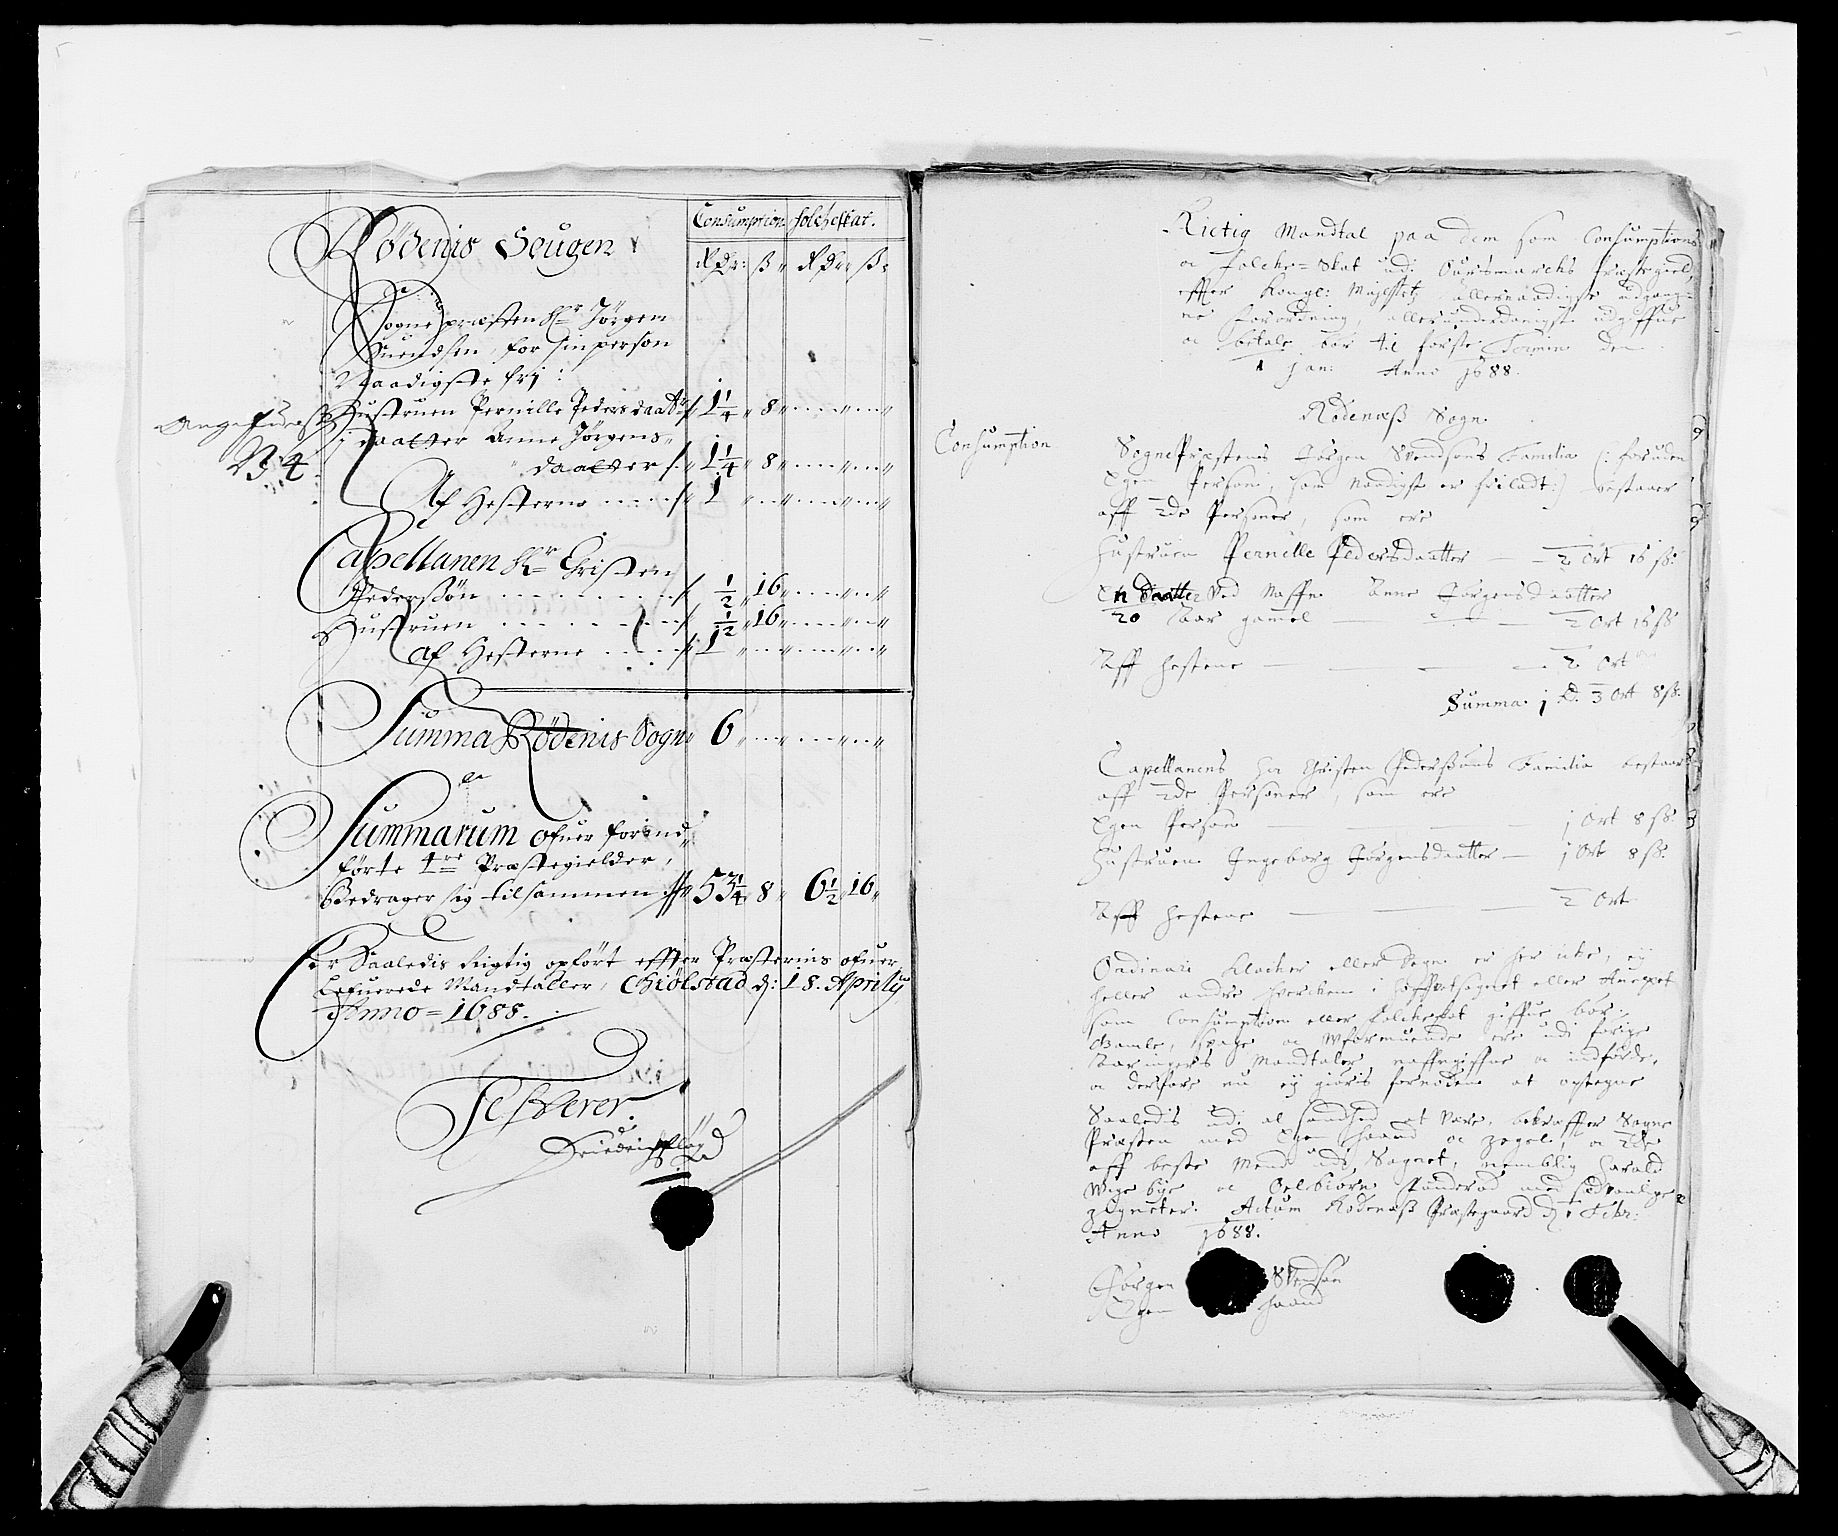 Consumption. folcheskat.
Rdr: ß Rdr ß
Rødenis Sougen
Sogne præsten Hr Jørgen
Suendsen, for sin person
Naadigste frj:
Hustruen Pernille Pedersdaatr 1¼ 8
1 daatter Anne Jørgens-
daatter 1¼ 8
Af Hesterne 1
N 4
Capellanen Hr Christen
Pederssøn ½ 16
Hustruen ½ 16
af Hesterne 1
Summa Rødenis Sogn 6
Summarum ofuer foran
førte 4re Præstegielder,
Bedrager sig tilsammen 53¼ 8 6½ 16
Er Saaledis Rigtig opført effter Præsternis ofuer
Lefuerede Mandtaller, Chiølstad d: 18. Aprilij
Anno = 1688.
Rictig Mandtal paa dem som Consumptions
oc Folche-Skat udi Ourismarchs Præstegield,
effter Kongl: Mayestetz allernaadigste udgang-
ne forordning, allerunderdanigst udgiffue
oc betale bør til første Termin den
1 Jan: Anno 1688.
Rødenæß Sogn.
Consumption
SognePræstens Jørgen Svendsøns Familia (: foruden
Egen Person, som naadigst er friladt:) bestaaer
aff 2de Personer, som ere
Hustruen Pernille Pedersdaatter — 2 Ort 16 ß:
En daatter ved Naffn Anne Jørgensdaatter
20 Aar gamel — 2 Ort 16 ß
Aff hestene — 2 Ort
Summa 1 Rd. 3 Ort 8 ß:
Capellanens Her Christen Pederssøns Familia bestaar
aff 2de Personer, som ere
Egen Person — 1 Ort 8 ß:
Hustruen Ingeborg Jørgensdaatter — 1 Ort 8 ß:
Aff hestene — 2 Ort
Ordinari Klocker eller Degn er her icke, ej
heller andre huercken i Hoffvetsognet eller Anexet
som Consumption eller Folcheskat giffue bør.
Gamle, svage oc Wformuende ere udi forige
Aaringers Mandtaler naffngiffne oc indførde,
oc derfore nu ej giøris fornøden at optegne
Saaledis udi al sandhed at være, bekræffter Sogne
Præsten med Egen haand oc Zegel, oc 2de
aff beste Mend udi Sognet, nemblig Harald
oc med sædvanlige
Zigneter. Actum Rødenæß Præstegaard d. 1 Febr:
Anno 1688.
Jørgen Svendsøn
Egen haand